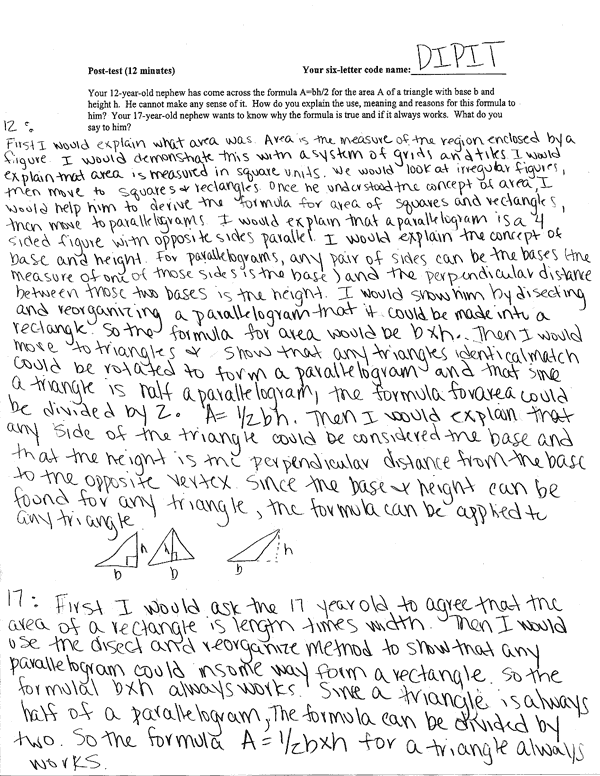 DIPIT
Post-test (12 minutes) Your six-letter code name:
Your 12-year-old nephew has come across the formula A=bh/2 for the area A of a triangle with base b and
height h. He cannot make any sense of it. How do you explain the use, meaning and reasons for this formula to
him? Your 17-year-old nephew wants to know why the formula is true and if it always works. What do you
say to him?
12:
First I would explain what area was. Area is the measure of the region enclosed by a
figure. I would demonstrate this with a system of grids and tiles. I would
explain that area is measured in square units. We would look at irregular figures,
then move to squares & rectangles. Once he understood the concept of area, I
would help him to derive the formula for area of squares and rectangles,
then move to parallelograms. I would explain that a parallelogram is a 4
sided figure with opposite sides parallel. I would explain the concept of
base and height. For parallelograms, any pair of sides can be the bases (the
measure of one of those sides is the base) and the perpendicular distance
between those two bases is the height. I would show him by disecting
and reorganizing a parallelogram that it could be made into a
rectangle. So the formula for area would be bxh. Then I would
move to triangles & show that any triangles identical match
could be rotated to form a parallelogram and that since
a triangle is half a parallelogram, the formula for area could
be divided by 2. A= 1/2 bh. Then I would explain that
any side of the triangle could be considered the base and
that the height is the perpendicular distance from the base
to the opposite vertex. Since the base & height can be
found for any triangle, the formula can be applied to
any triangle
h h h
b b b
17: First I would ask the 17 year old to agree that the
area of a rectangle is length times width. Then I would
use the disect and reorganize method to show that any
parallelogram could in some way form a rectangle. So the
formulal bxh always works. Since a triangle is always
half of a parallelogram, The formula can be divided by
two. So the formula A = 1/2 bxh for a triangle always
works.